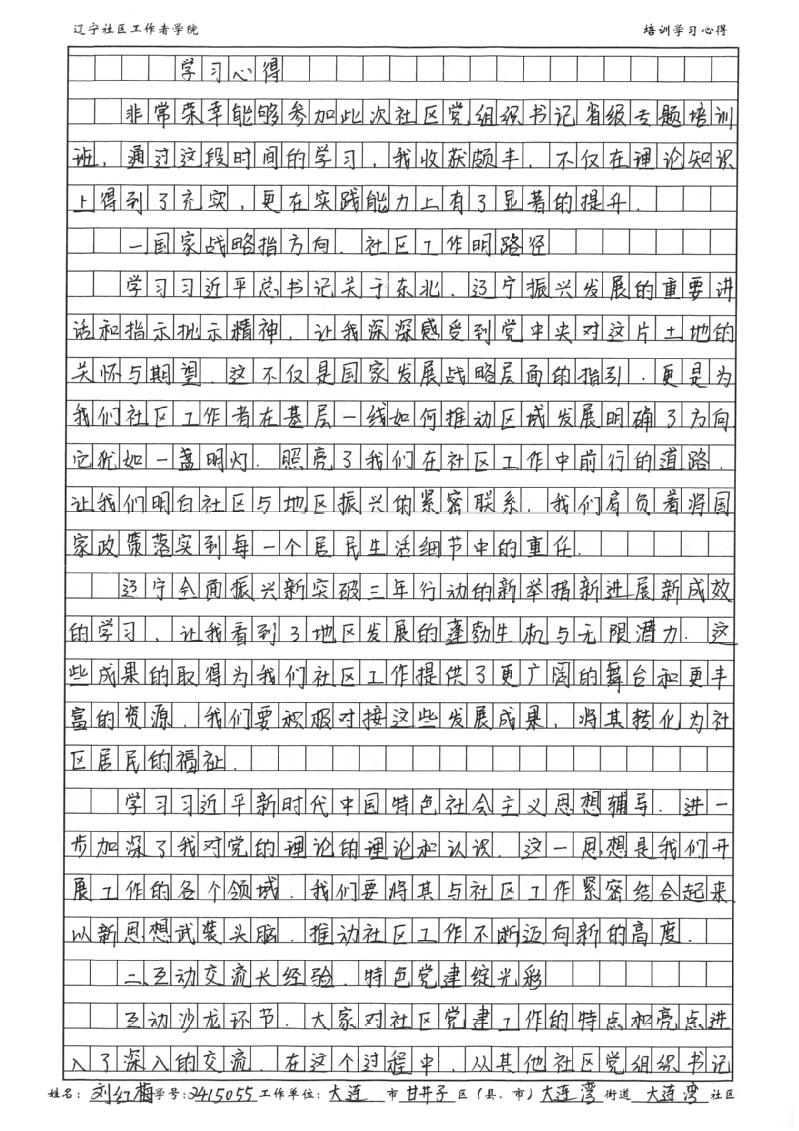 辽宁社区工作者学院 培训学习心得
学习心得
非常荣幸能够参加此次社区党组织书记省级专题培训
班，通过这段时间的学习，我收获颇丰．不仅在理论知识
上得到了充实，更在实践能力上有了显著的提升．
一国家战略指方向．社区工作明路径
学习习近平总书记关于东北、辽宁振兴发展的重要讲
话和指示批示精神，让我深深感受到党中央对这片土地的
关怀与期望．这不仅是国家发展战略层面的指引．更是为
我们社区工作者在基层一线如何推动区域发展明确了方向
它犹如一盏明灯．照亮了我们在社区工作中前行的道路．
让我们明白社区与地区振兴的紧密联系．我们肩负着将国
家政策落实到每一个居民生活细节中的重任．
辽宁全面振兴新突破三年行动的新举措新进展新成效
的学习，让我看到了地区发展的蓬勃生机与无限潜力．这
些成果的取得为我们社区工作提供了更广阔的舞台和更丰
富的资源．我们要积极对接这些发展成果，将其转化为社
区居民的福祉．
学习习近平新时代中国特色社会主义思想辅导．进一
步加深了我对党的理论的理论和认识．这一思想是我们开
展工作的各个领域．我们要将其与社区工作紧密结合起来
以新思想武装头脑．推动社区工作不断迈向新的高度．
二、互动交流长经验．特色党建绽光彩
互动沙龙环节．大家对社区党建工作的特点和亮点进
入了深入的交流．在这个过程中，从其他社区党组织书记
姓名：刘红梅 学号：2415055 工作单位：大连 市 甘井子 区（县、市）大连湾 街道 大连湾 社区